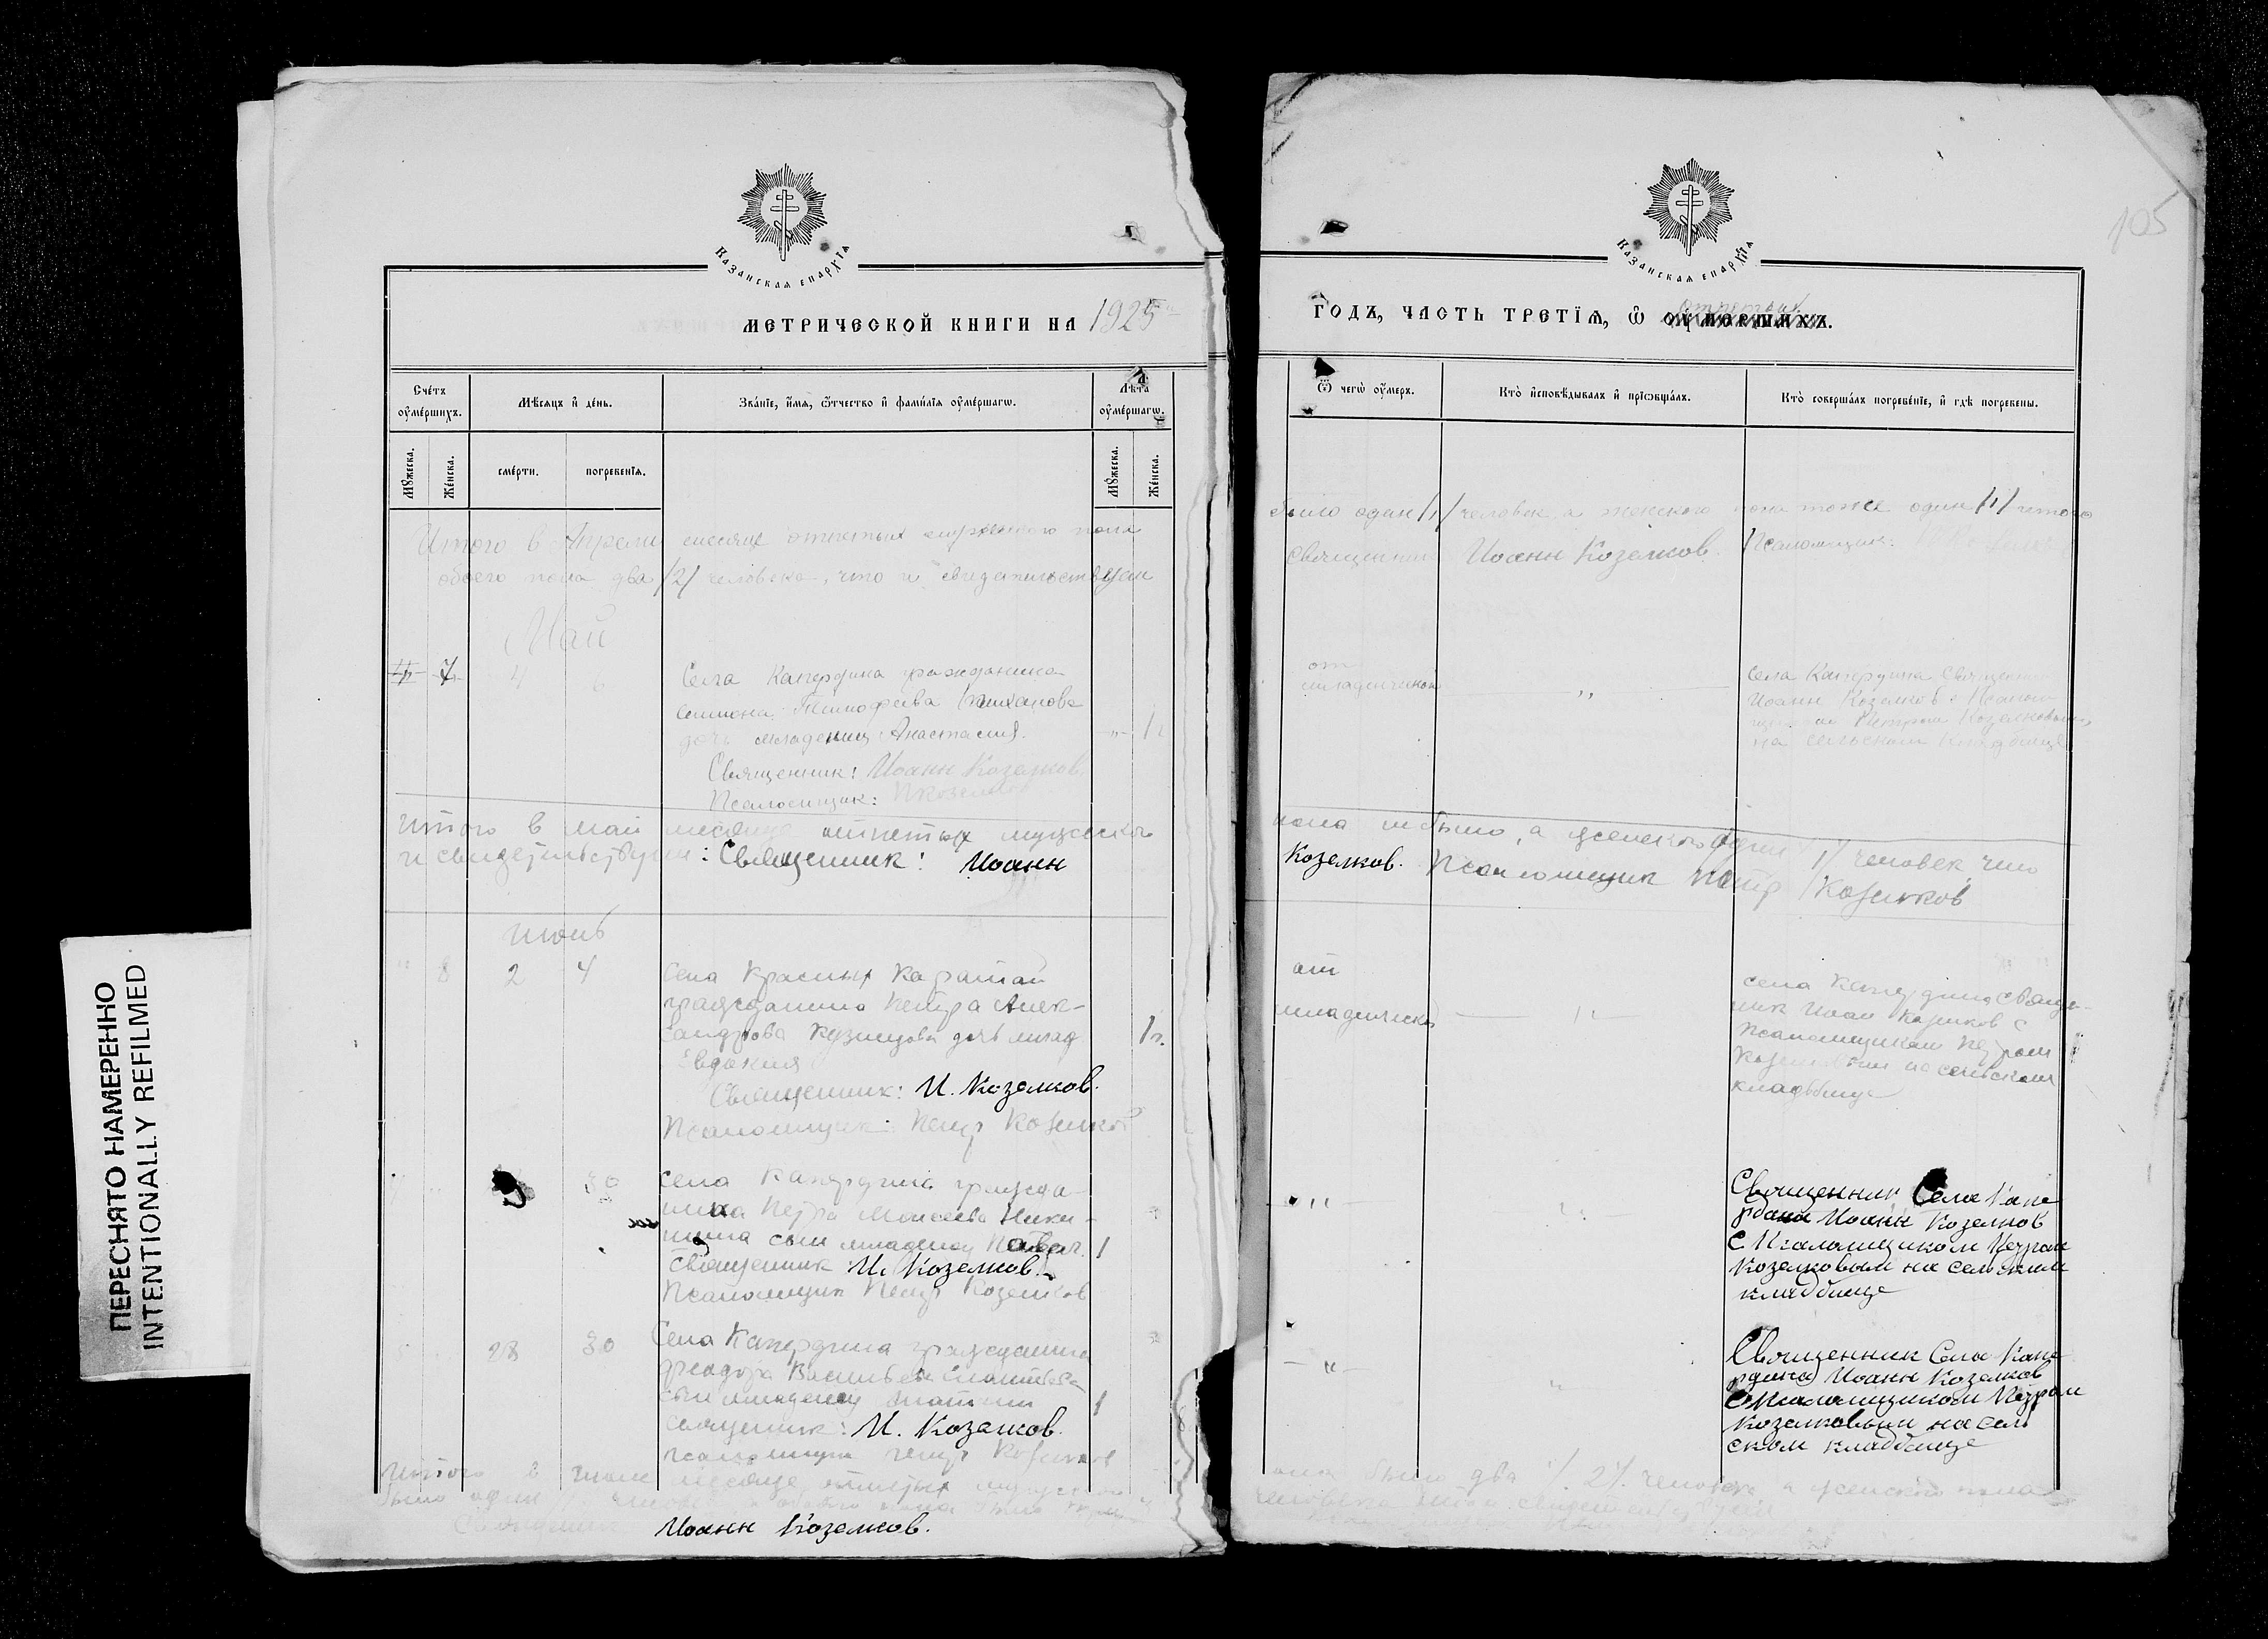 ПЕРЕСНЯТО НАМЕРЕННО
INTENTIONALLY REFILMED
Казанская епархїѧ
МЕТРИЧЕСКОЙ КНИГИ НА 1925
Счетъ оумершихъ.
Мѣсяцъ и день.
Званїе, имя, отчество и фамилїя оумершагѡ.
Лѣта оумершагѡ.
Мужеска.
Женска.
смерти.
погребенїя.
Мужеска.
Женска.
Итого в Апреле месяце отпетых мужского пола
обоего пола два /2/ человека, что и свидетельствуем
Май
7 4 6 Села Капердина гражданина
Тимофеева
дочь младенец Анастасия. 1 г
Священник: Иоанн Козелков
Псаломщик: П Козелков
Итого в май месяце отпетых мужского
и свидетельствуем: Священник: Иоанн
июнь
8 2 4 Села Красных Каратай
гражданина Петра Алек-
сандрова Кузнецова дочь млад
Евдокия 1 г.
Священник: И. Козелков.
Псаломщик: Петр Козелков
30 Села Капердина гражда-
нина Петра Моисеева Ники-
тина сын младенец 1
Священник И. Козелков.
Псаломщик Петр Козелков
28 30 Села Капердина гражданина
Феодора Васильева
сын младенец 1
Священник: И. Козелков.
псаломщик Петр Козелков
Итого в июне месяце отпетых мужского
было один человек обоего пола было
Священник Иоанн Козелков.
105
Казанская епархїѧ
ГОДЪ, ЧАСТЬ ТРЕТЇѦ, Ѡ ОУМЕРШИХЪ.
отпетых
Ѿ чегѡ оумеръ.
Кто исповѣдывалъ и прїѡбщалъ.
Кто совершалъ погребенїе, и гдѣ погребены.
было один /1/ человек, а женского пола тоже один /1/ итого
Священник Иоанн Козелков. Псаломщик:
от
младенческой
"
Села Капердина Священник
Иоанн Козелков с Псалом
щиком Петром Козелковым
на сельском кладбище
пола не было, а женского один /1/ человек что
Козелков. Псаломщик Петр Козелков
от
младенческой
"
села Капердина Священ-
ник Иоан Козелков с
Псаломщиком Петром
Козелковым на сельском
кладбище
"
Священник Села Капе
рдина Иоанн Козелков
с Псаломщиком Петром
Козелковым на сельском
кладбище
"
Священник Села Капе
рдина Иоанн Козелков
с Псаломщиком Петром
Козелковым на сель
ском кладбище
пола было два /2/ человека а женского пола
человека что и свидетельствуем